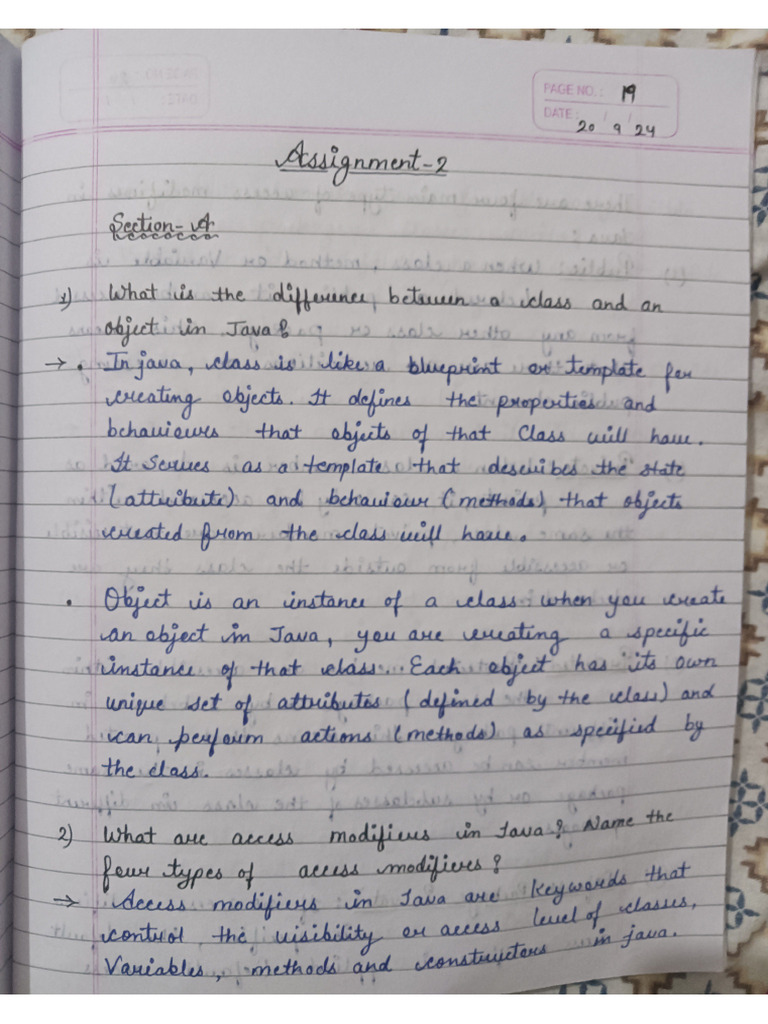 PAGE NO.: 19
DATE: 20 / 9 / 24
Assignment-2
Section-A
1) What is the difference between a class and an
object in Java?
→ • In java, class is like a blueprint or template for
creating objects. It defines the properties and
behaviours that objects of that Class will have.
It Serves as a template that describes the state
(attribute) and behaviour (methods) that objects
created from the class will have.
• Object is an instance of a class when you create
an object in Java, you are creating a specific
instance of that class. Each object has its own
unique set of attributes (defined by the class) and
can perform actions (methods) as specified by
the class.
2) What are access modifiers in Java? Name the
four types of access modifiers?
→ Access modifiers in Java are keywords that
control the visibility or access level of classes,
Variables, methods and constructors in java.